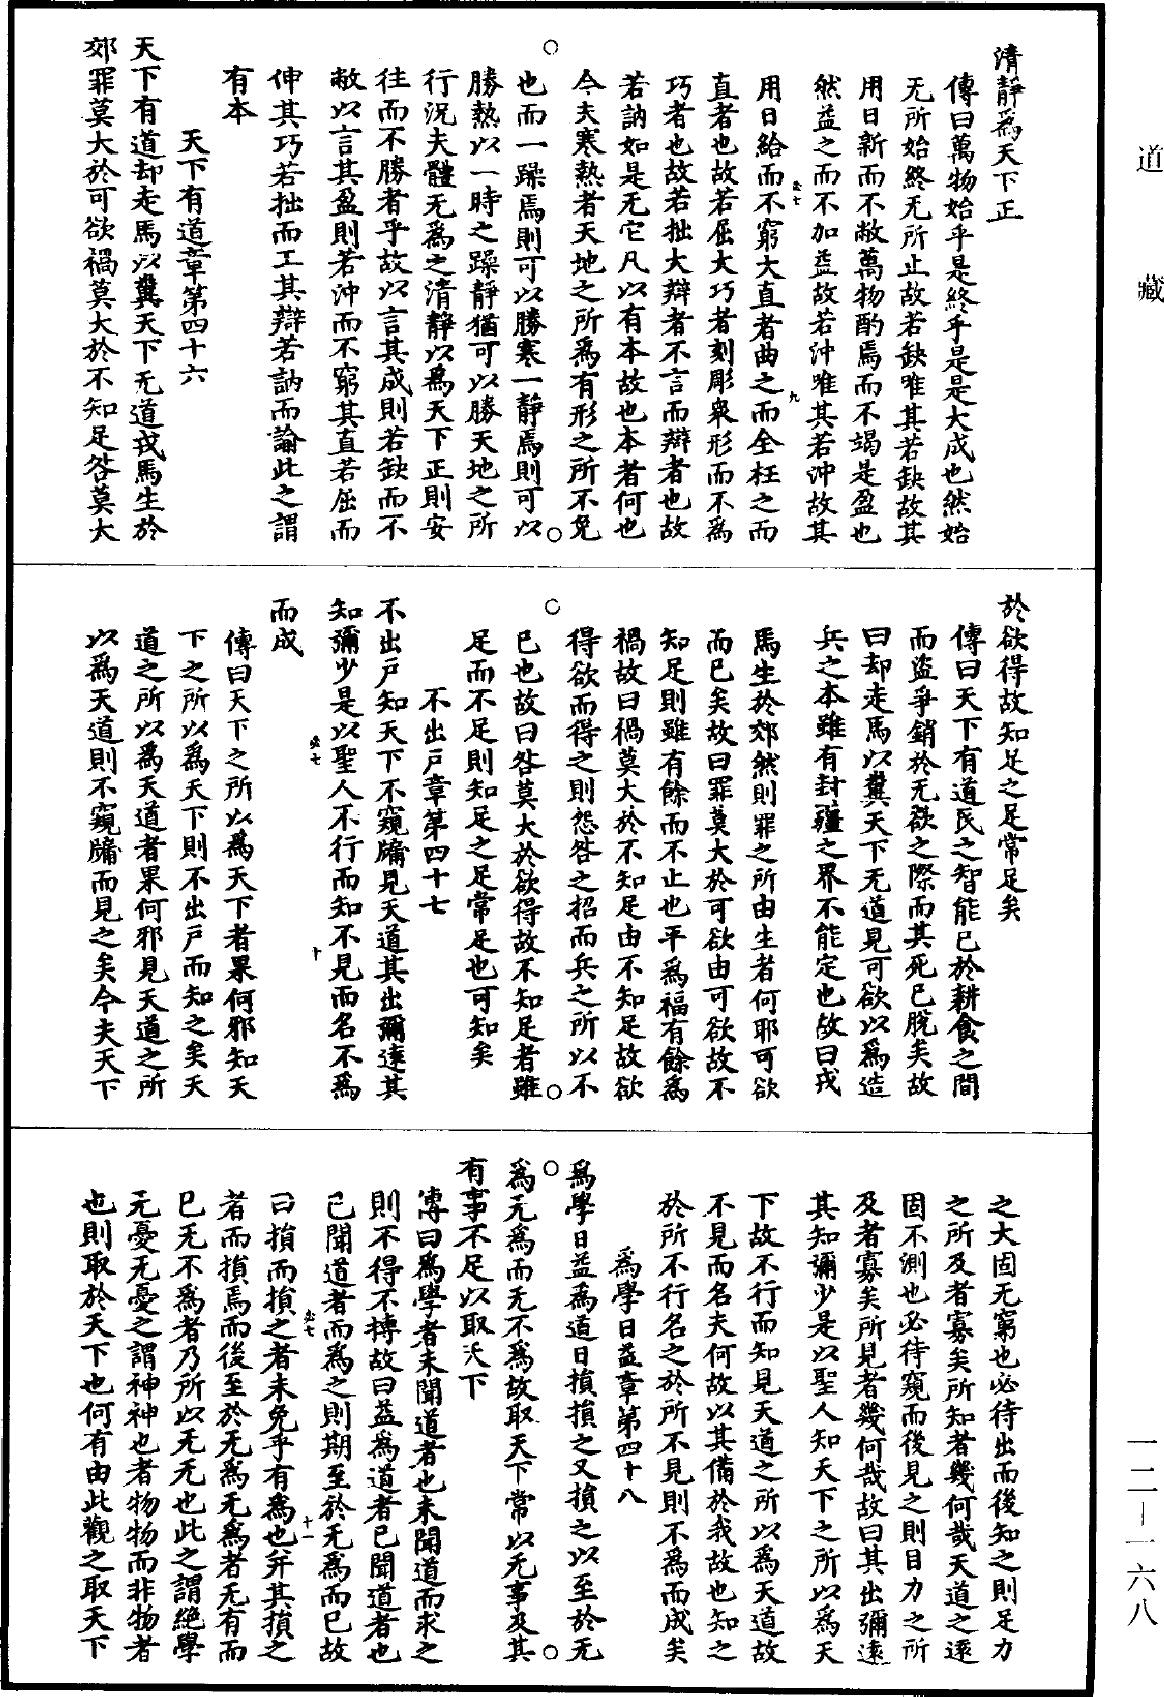 道藏
清靜為天下正
傳曰萬物始乎是終乎是是大成也然始
无所始終无所止故若缺唯其若缺故其
用日新而不敝萬物酌焉而不竭是盈也
然益之而不加益故若沖唯其若沖故其
用日給而不窮大直者曲之而全枉之而
直者也故若屈大巧者刻彫衆形而不為
巧者也故若拙大辯者不言而辯者也故
若訥如是无它凡以有本故也本者何也
今夫寒熱者天地之所為有形之所不免
也而一躁焉則可以勝寒一靜焉則可以
勝熱以一時之躁靜猶可以勝天地之所
行況夫體无為之清靜以為天下正則安
往而不勝者乎故以言其成則若缺而不
敝以言其盈則若沖而不窮其直若屈而
伸其巧若拙而工其辯若訥而論此之謂
有本
天下有道章第四十六
天下有道却走馬以糞天下无道戎馬生於
郊罪莫大於可欲禍莫大於不知足咎莫大
於欲得故知足之足常足矣
傳曰天下有道民之智能已於耕食之間
而盜爭銷於无欲之際而其死已脫矣故
曰却走馬以糞天下无道見可欲以為造
兵之本雖有封疆之界不能定也故曰戎
馬生於郊然則罪之所由生者何耶可欲
而已矣故曰罪莫大於可欲由可欲故不
知足則雖有餘而不止也平為福有餘為
禍故曰禍莫大於不知足由不知足故欲
得欲而得之則怨咎之招而兵之所以不
已也故曰咎莫大於欲得故不知足者雖
足而不足則知足之足常足也可知矣
不出戶章第四十七
不出戶知天下不窺牖見天道其出彌遠其
知彌少是以聖人不行而知不見而名不為
而成
傳曰天下之所以為天下者果何邪知天
下之所以為天下則不出戶而知之矣天
道之所以為天道者果何邪見天道之所
以為天道則不窺牖而見之矣今夫天下
之大固无窮也必待出而後知之則足力
之所及者寡矣所知者幾何哉天道之遠
固不測也必待窺而後見之則目力之所
及者寡矣所見者幾何哉故曰其出彌遠
其知彌少是以聖人知天下之所以為天
下故不行而知見天道之所以為天道故
不見而名夫何故以其備於我故也知之
於所不行名之於所不見則不為而成矣
為學日益章第四十八
為學日益為道日損損之又損之以至於无
為无為而无不為故取天下常以无事及其
有事不足以取天下
傳曰為學者未聞道者也未聞道而求之
則不得不摶故曰益為道者已聞道者也
已聞道者而為之則期至於无為而已故
曰損而損之者未免乎有為也并其損之
者而損焉而後至於无為无為者无有而
已无不為者乃所以无无也此之謂絕學
无憂无憂之謂神神也者物物而非物者
也則取於天下也何有由此觀之取天下
一二—一六八